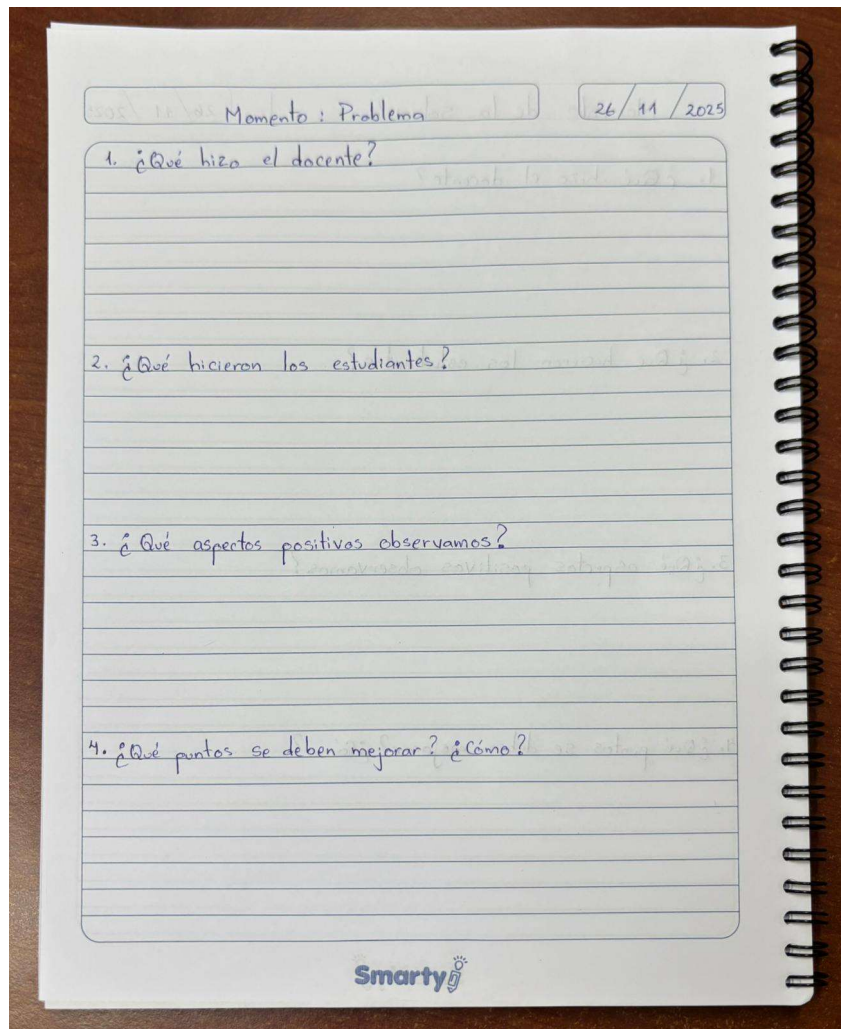 Momento: Problema
26/11/2025
1. ¿Qué hizo el docente?
2. ¿Qué hicieron los estudiantes?
3. ¿Qué aspectos positivos observamos?
4. ¿Qué puntos se deben mejorar? ¿Cómo?
Smarty